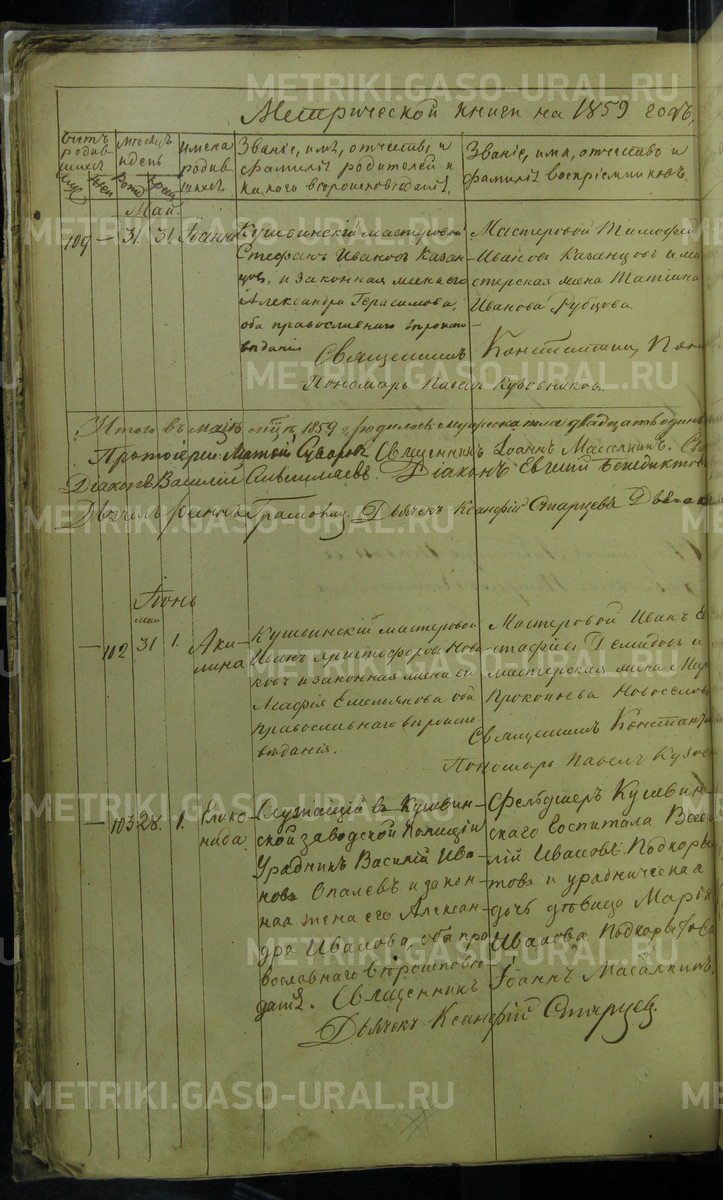 METRIKI.GASO-URAL.RU
Метрической книги на 1859 годъ,
Счетъ родив-шихся
Мѣсяцъ и день
Имена родив-шихся
Званіе, имя, отчество и
фамилія родителей и
какого вѣроисповѣданія.
Званіе, имя, отчество и
фамилія воспріемниковъ.
Май.
109 — 31. 31. Іоаннъ
Кушвинскій мастеровой
Стефанъ Ивановъ Казан-
цовъ, и законная жена его
Александра Герасимова,
оба православнаго вѣроиспо-
вѣданія
Мастеровой Тимофей
Ивановъ Казанцовъ и ма-
стерская жена Татіана
Иванова Рубцова.
Священникъ Константинъ
Пономарь Павелъ Кузовниковъ.
Итого въ маѣ мѣсяцѣ 1859 г. родилось мужеска пола двадцать одинъ
Протоіерей Матѳій Суворовъ Священникъ Іоаннъ Масалкинъ.
Діаконъ Василій Діаконъ Евгеній Бенедиктов
Дьячекъ Ксанфій Старцевъ
Іюнь
маи
— 102 31 1. Аки-
лина
Кушвинскій мастеровой
Иванъ Христофоровъ Нова-
ковъ и законная жена его
Марія Емельянова оба
православнаго вѣроиспо-
вѣданія.
Мастеровой Иванъ Е
стафіевъ Демидовъ и
мастерская жена Мар
Прокопьева Новоселов
Священникъ Константин
Пономарь Павелъ Кузовн
— 103 28. 1. Елико-
нида.
Служащій въ Кушвин-
ской заводской полиціи
Урядникъ Василій Ива-
новъ Опалевъ и закон-
ная жена его Алексан-
дра Иванова, оба пра-
вославнаго вѣроисповѣ-
данія.
Фельдшеръ Кушвин-
скаго госпиталя Васи
лій Ивановъ Подкоры
товъ и урядническая
дочь дѣвица Марія
Иванова Подкорытова
Священникъ Іоаннъ Масалкинъ.
Дьячекъ Ксанфій Старцев.